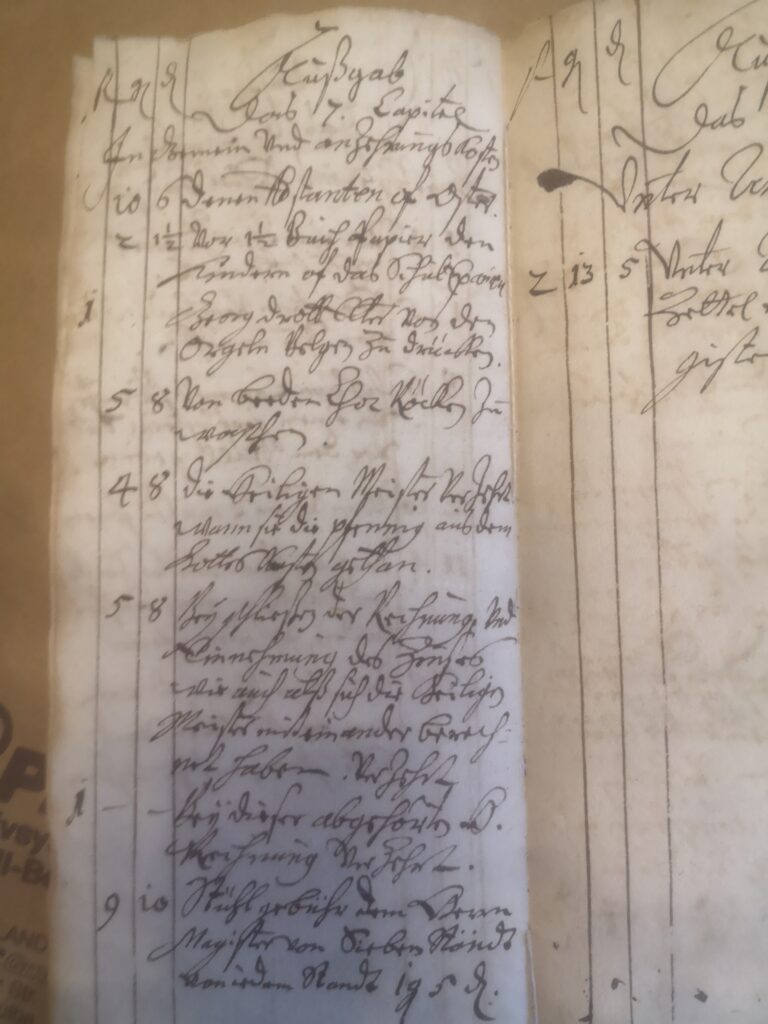 fl g d Außgab
Das 7. Capitel
In gemein Und an Zehrungs Kosten
10 6 denen Astanten of Oster.
2 1½ Vor 1½ Buch Papier den
Kindern of das Schul
1 Georg von den
Orgeln Belgen Zu drücken.
5 8 Von beeden Chor Röcken Zu
waschen.
4 8 die Heiligen Meister Verzehrt
wann sie die pfennig aus dem
Gottes Kasten gethan.
5 8 Bey schließen der Rechnung, Und
Einnehmung des Zinses
wie auch alß sich die Heiligen
Meister mit einander berech-
net haben Verzehrt,
1 - - Bey dieser abgehörten H.
Rechnung Verzehrt.
9 10 Stühl gebühr dem Herrn
Magister von Sieben Ständt
von iedem Standt 1g 5 d.
fl g d
Das
Unter
2 13 5 Unter
Zettel